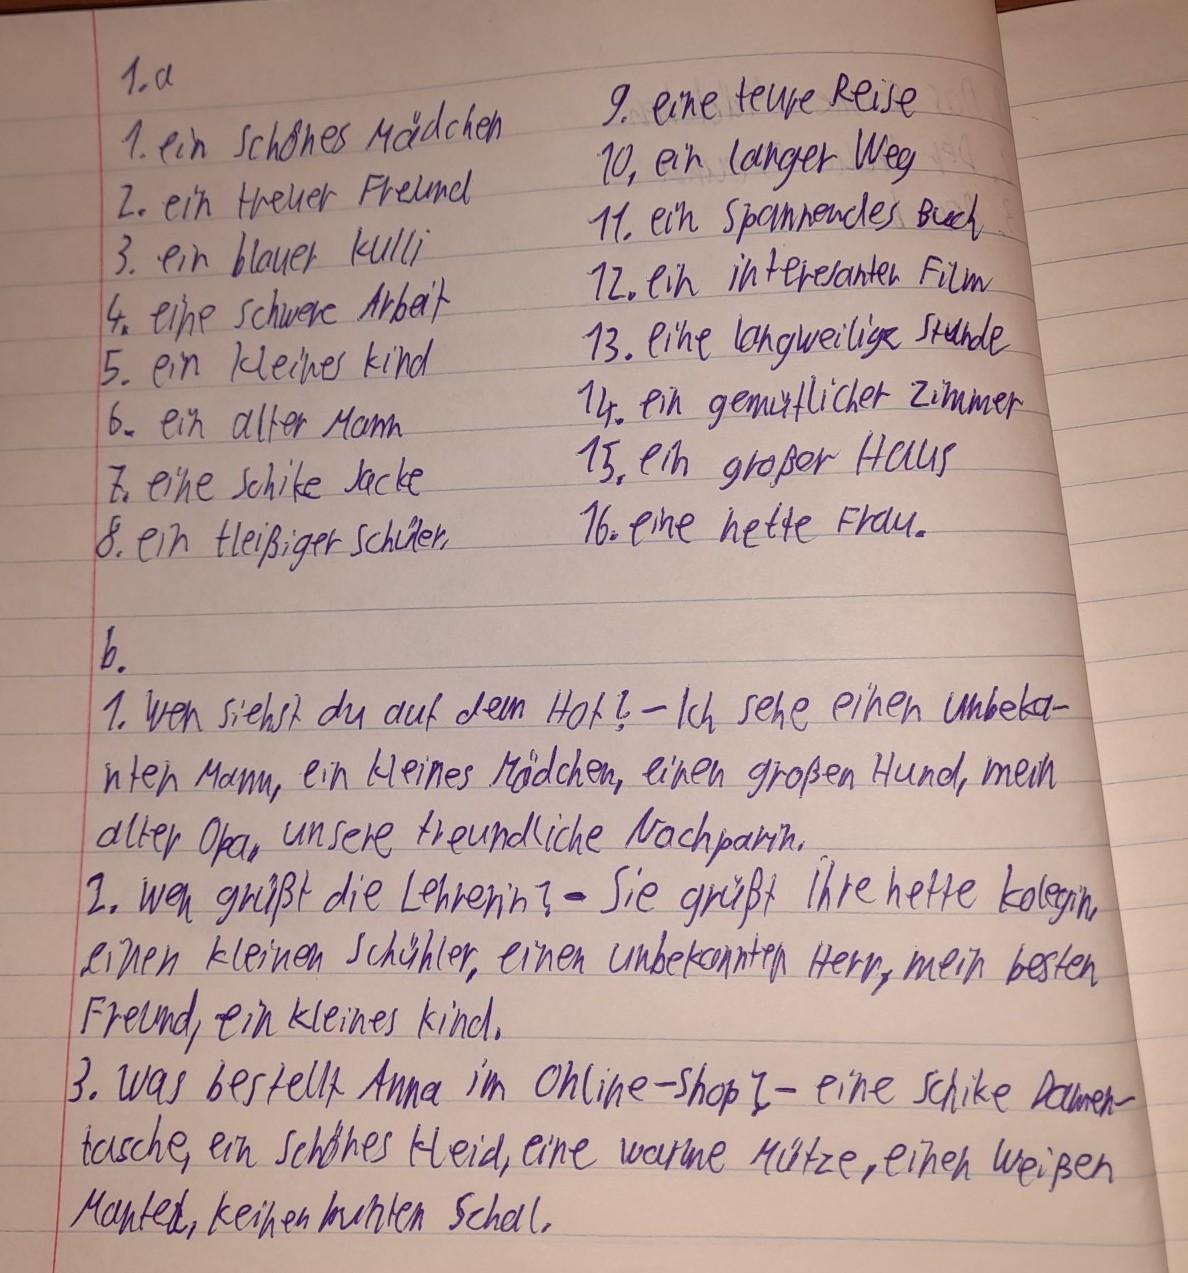 1.a
1. ein schönes Mädchen
2. ein treuer Freund
3. ein blauer Kulli
4. eine schwere Arbeit
5. ein kleines Kind
6. ein alter Mann
7. eine schike Jacke
8. ein fleißiger Schüler,
9. eine teure Reise
10, ein langer Weg
11. ein spannendes Buch
12. ein interesanter Film
13. eine langweilige Stunde
14. ein gemütlicher Zimmer
15, ein großer Haus
16. eine nette Frau.
b.
1. Wen siehst du auf dem Hof? - Ich sehe einen unbeka-
nnten Mann, ein kleines Mädchen, einen großen Hund, mein
alter Opa, unsere freundliche Nachparin.
2. Wen grüßt die Lehrerin? - Sie grüßt ihre nette Kolegin,
einen kleinen Schühler, einen unbekannten Herr, mein besten
Freund, ein kleines Kind.
3. Was bestellt Anna im Online-Shop? - eine schike Damen-
tasche, ein schönes Kleid, eine warme Mütze, einen weißen
Mantel, keinen bunten Schal.